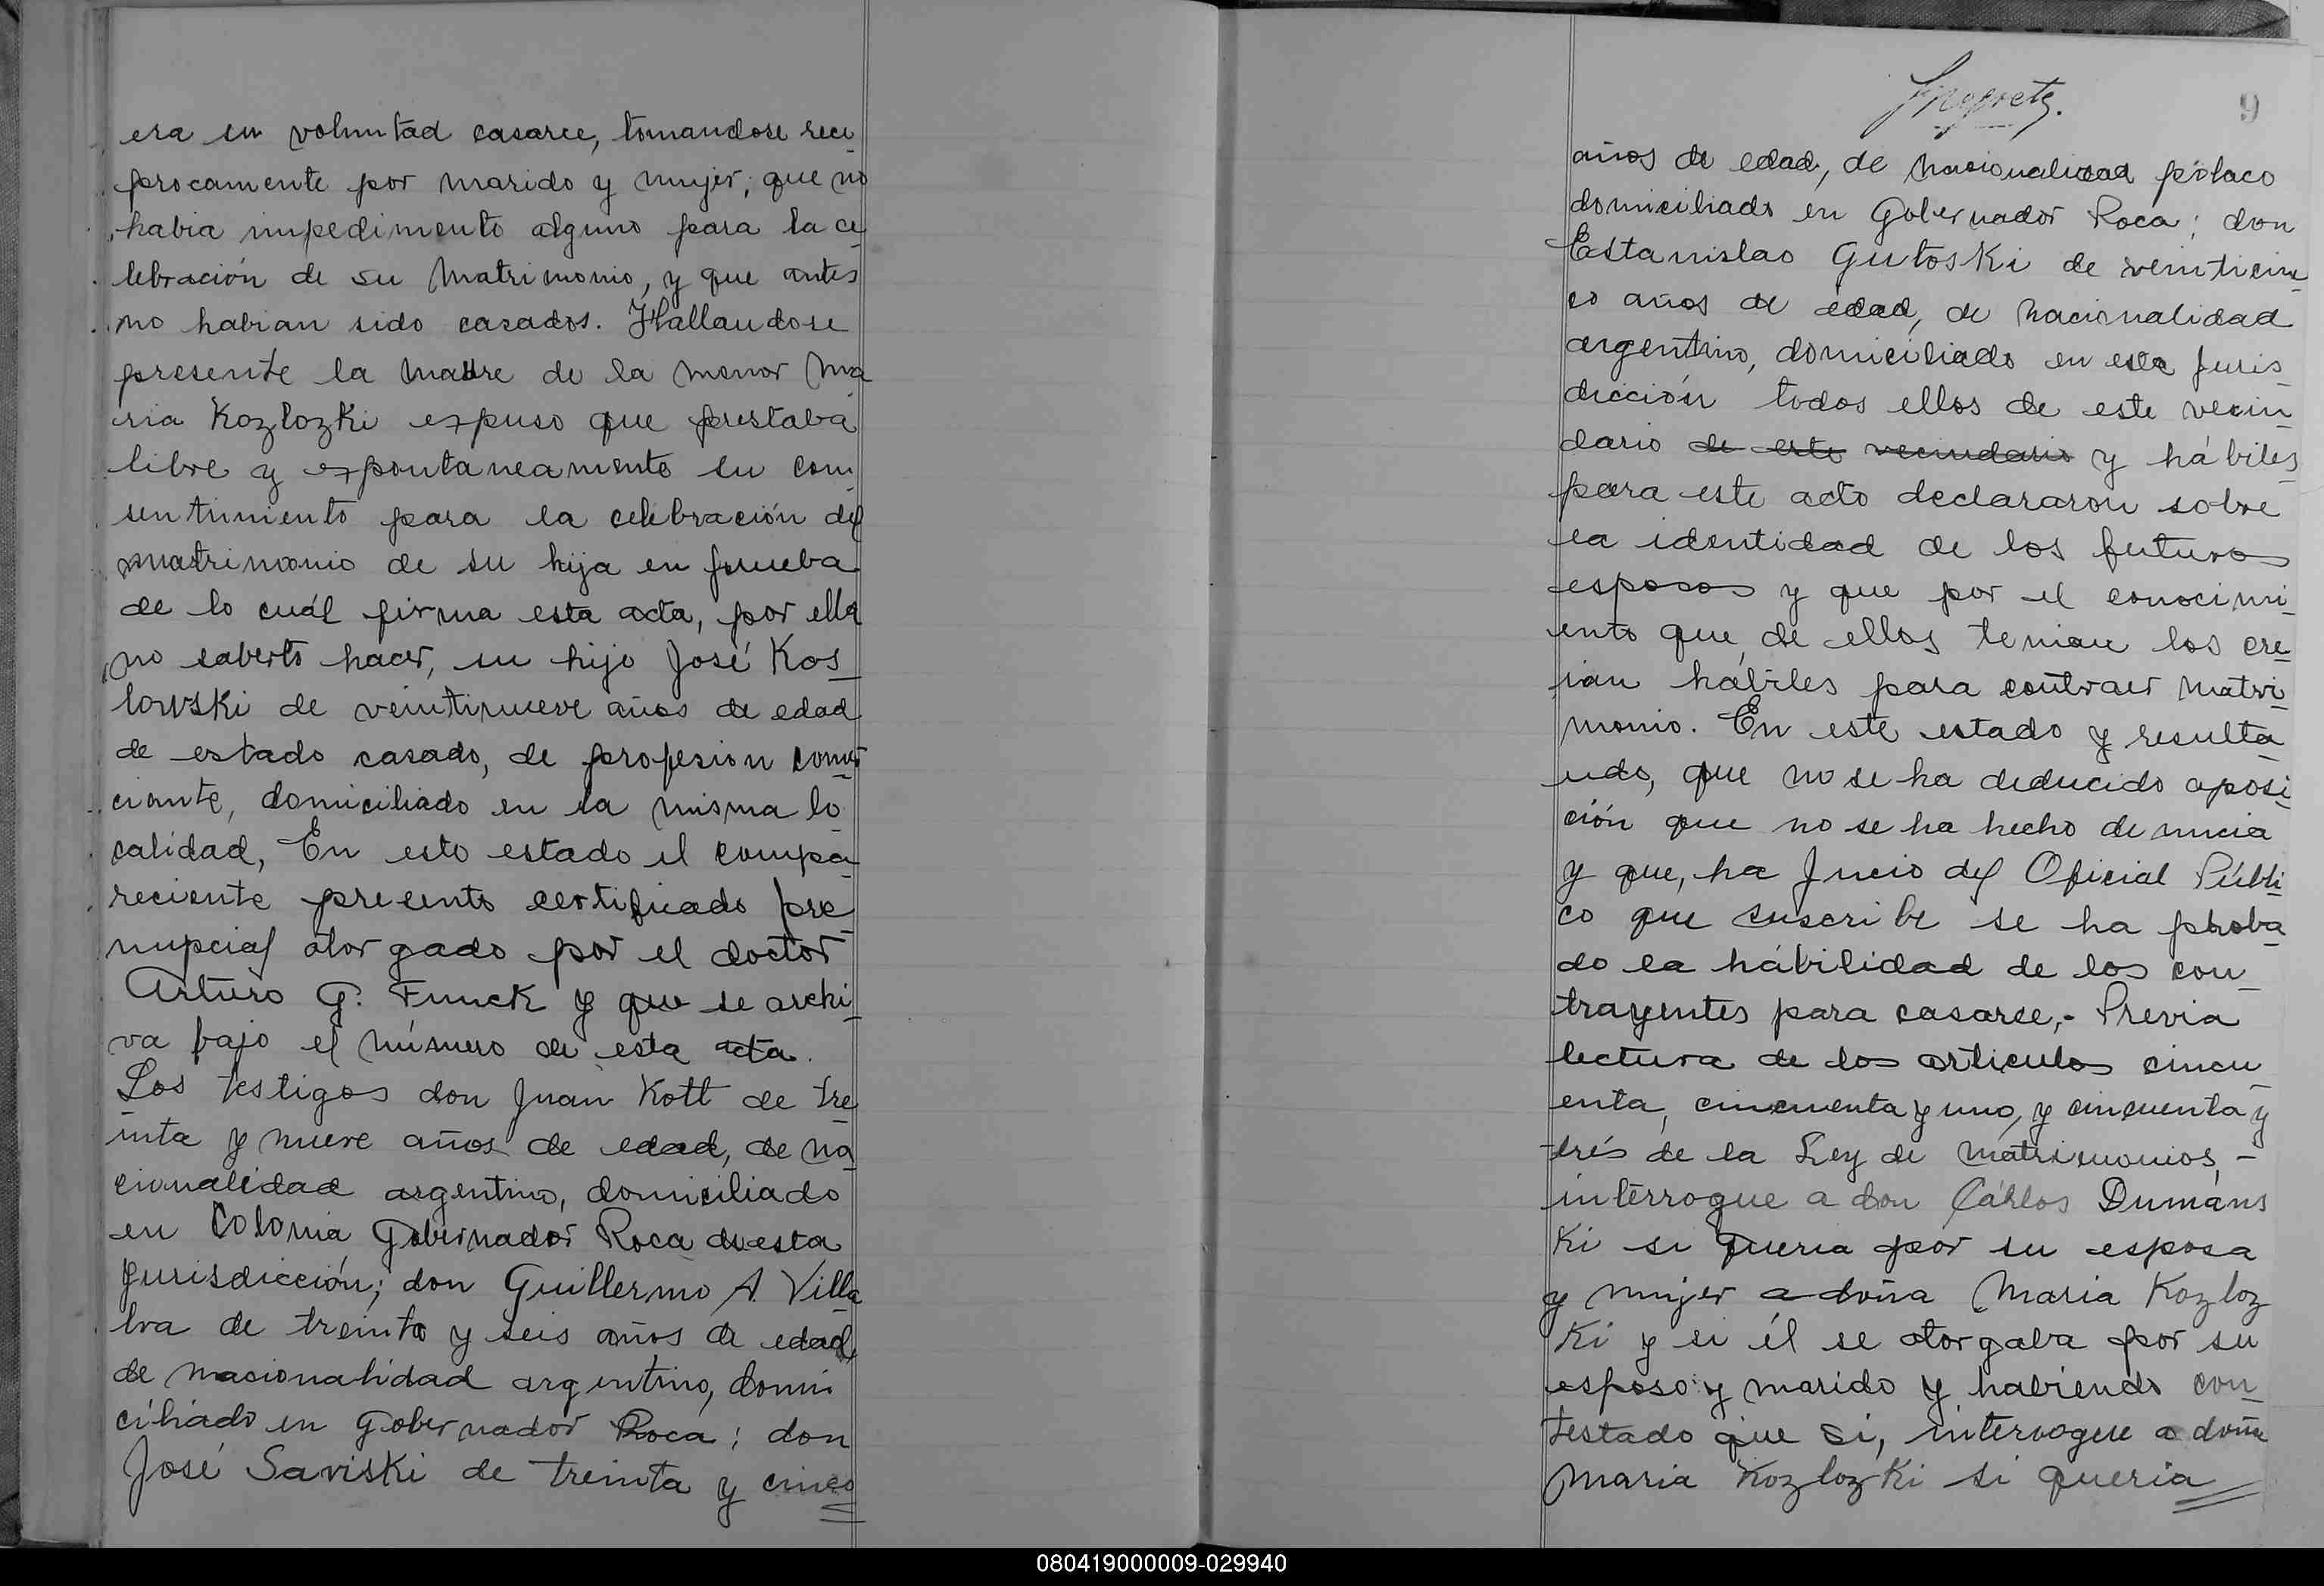 era su voluntad casarce, tomandose reci
procamente por marido y mujer; que no
habia impedimento alguno para la ce
lebración de su matrimonio, y que antes
no habian sido casados. Hallandose
presente la madre de la menor Ma
ria Kozlozki expuso que prestaba
libre y expontaneamente su con
sentimiento para la celebración del
matrimonio de su hija en prueba
de lo cuál firma esta acta, por ella
no saberlo hacer, su hijo José Kos
lowski de veintinueve años de edad
de estado casado, de profesion comer
ciante, domiciliado en la misma lo
calidad, En este estado el compa
reciente presento certificado pre
nupcial otorgado por el doctor
Arturo G. Funck y que se archi
va bajo el número de esta acta.
Los testigos don Juan Kott de tre
inta y nueve años de edad, de na
cionalidad argentino, domiciliado
en Colonia Gobernador Roca de esta
Jurisdicción; don Guillermo A. Villa
lva de treinta y seis años de edad
de nacionalidad argentino, domi
ciliado en Gobernador Roca; don
José Saviski de treinta y cinco
9
años de edad, de nacionalidad polaco
domiciliado en Gobernador Roca; don
Estanislao Gutoski de veinticin
co años de edad, de nacionalidad
argentino, domiciliado en esta Juris
dicción todos ellos de este vecin
dario de este vecindario y hábiles
para este acto declararon sobre
la identidad de los futuros
esposos y que por el conocimi
ento que de ellos tenian los cre
ian hábiles para contraer matri
monio. En este estado y resulta
ndo, que no se ha deducido oposi
ción que no se ha hecho denuncia
y que, ha Jucio del Oficial Públi
co que suscribe se ha proba
do la hábilidad de los con
trayentes para casarse,- Previa
lectura de los articulos cincu
enta, cincuenta y uno, y cincuenta y
trés de la Ley de matrimonios, -
interrogue a don Cárlos Dumáns
Ki si queria por su esposa
y mujer a doña Maria Kozloz
Ki y si él se otorgaba por su
esposo y marido y habiendo con
testado que si, interrogue a doña
Maria Kozlozki si queria
080419000009-029940